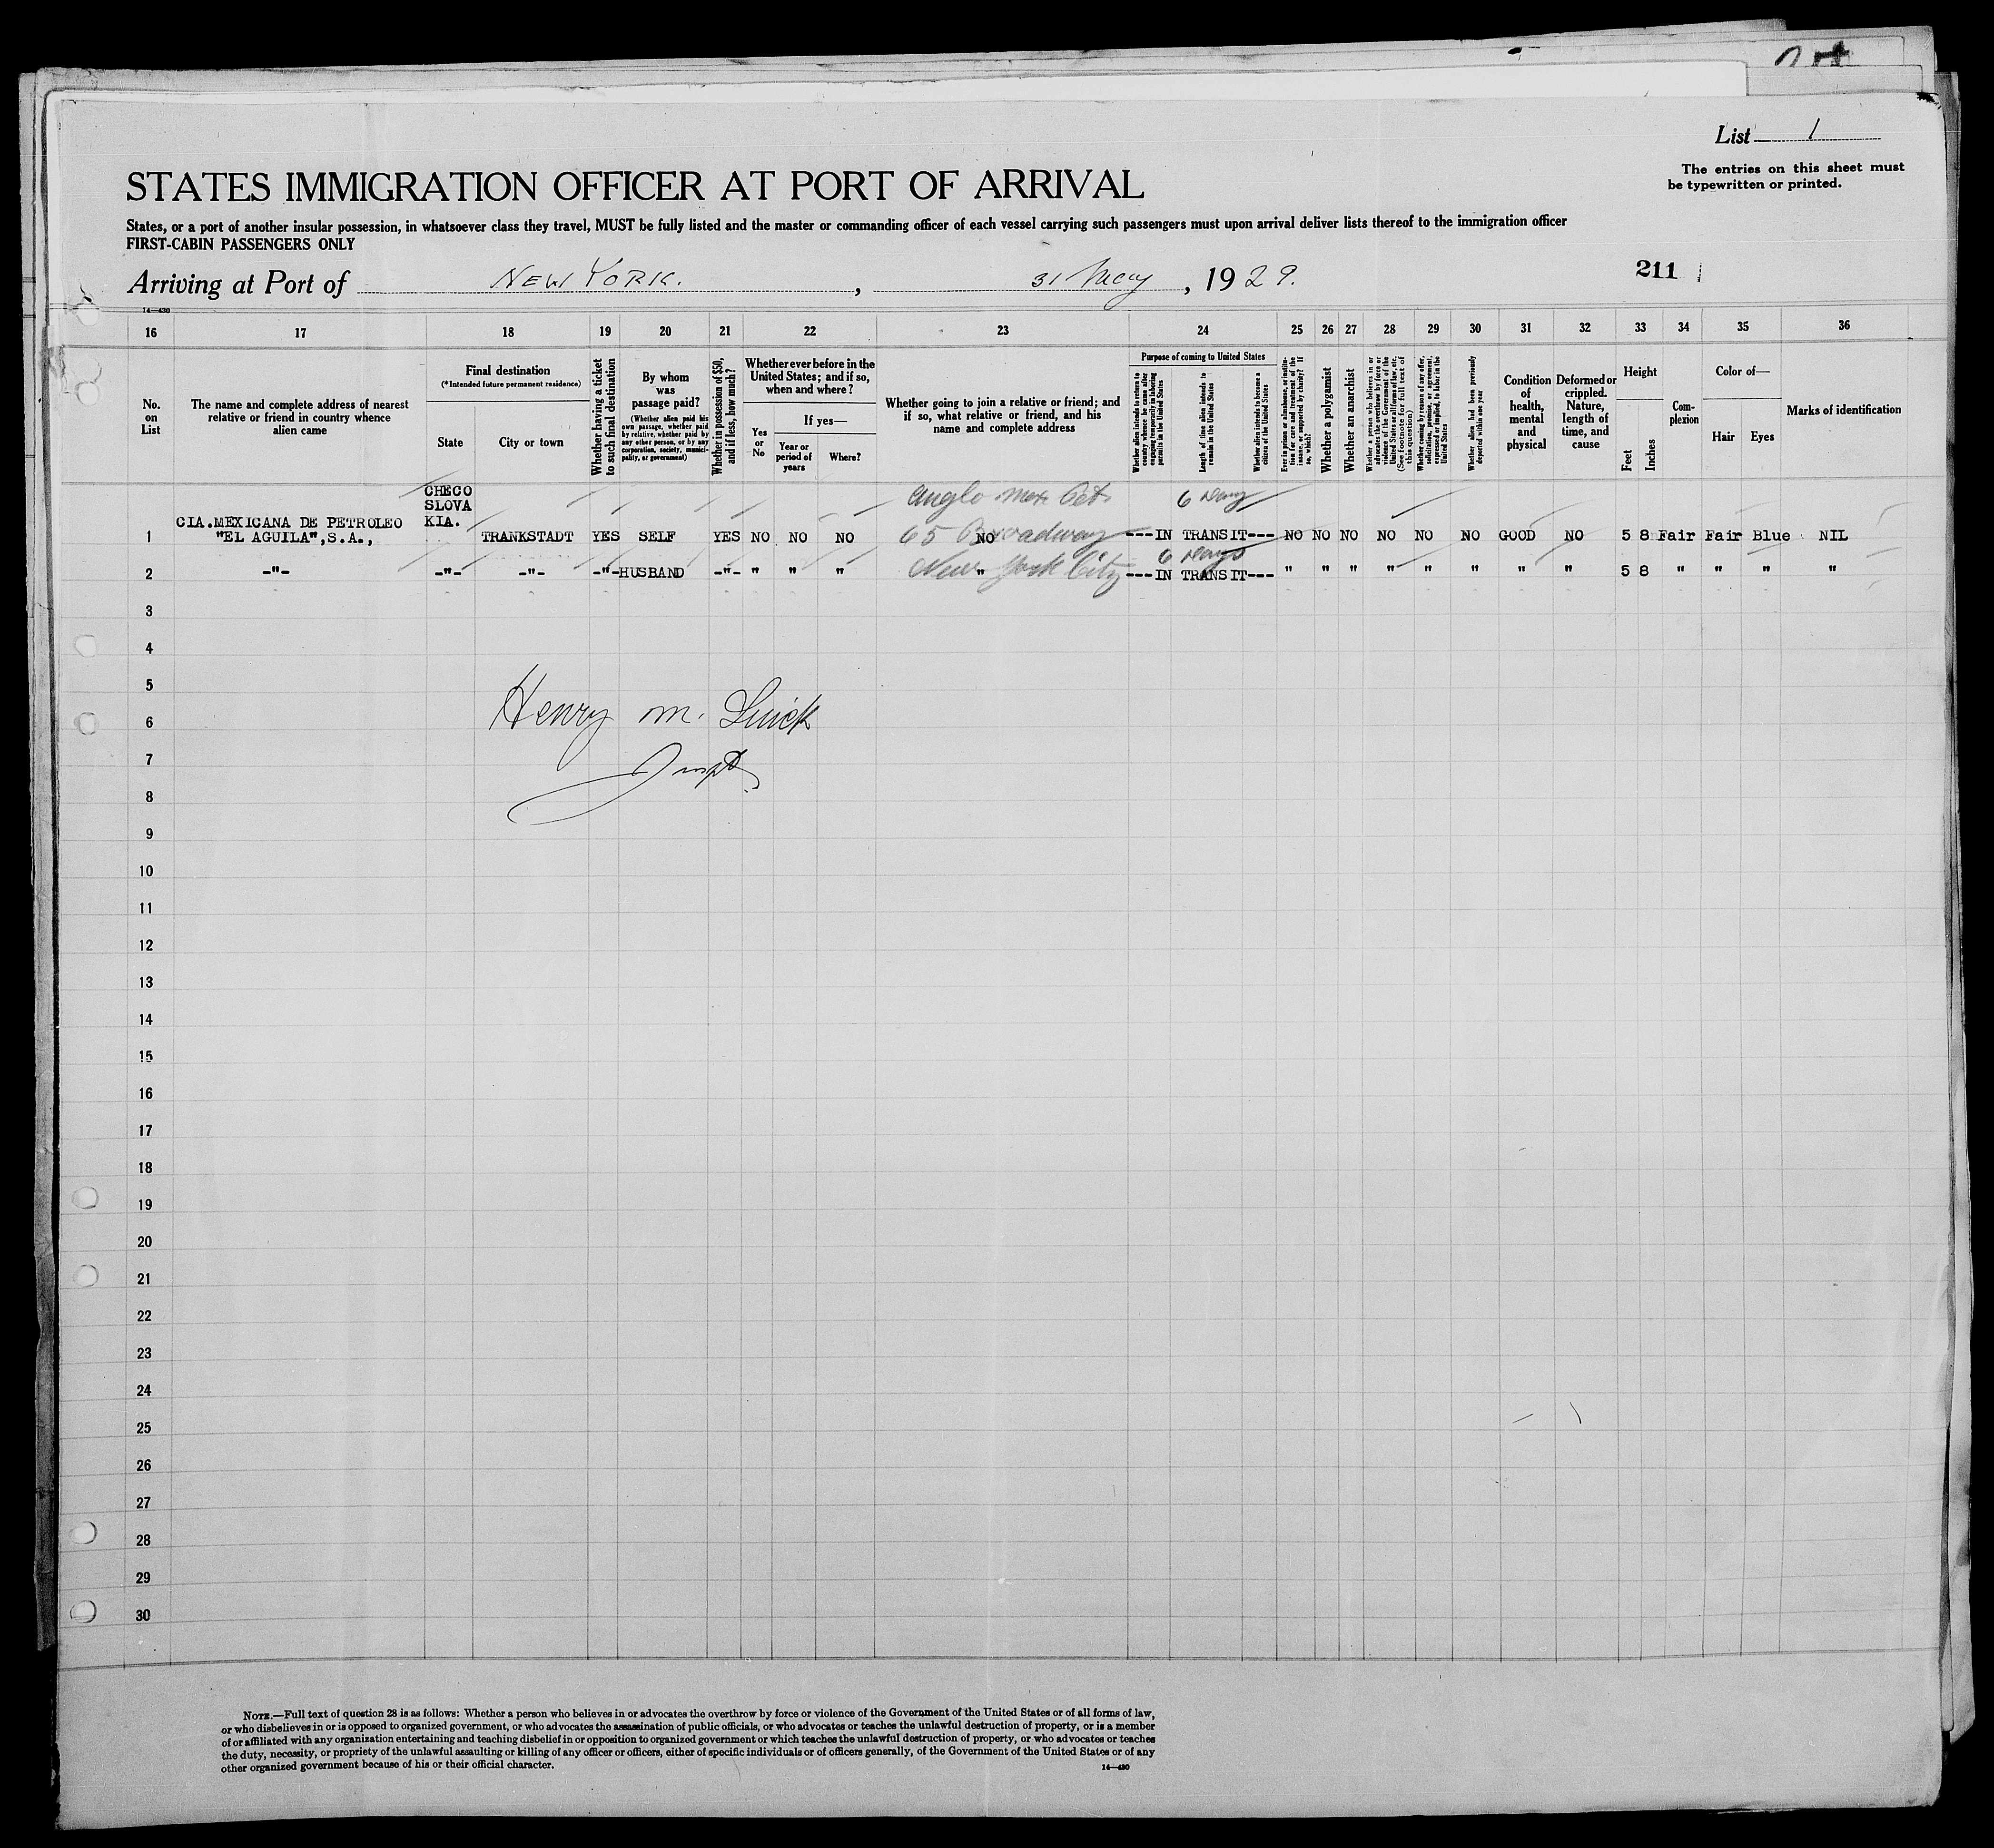 List 1
The entries on this sheet must
be typewritten or printed.
STATES IMMIGRATION OFFICER AT PORT OF ARRIVAL
States, or a port of another insular possession, in whatsoever class they travel, MUST be fully listed and the master or commanding officer of each vessel carrying such passengers must upon arrival deliver lists thereof to the immigration officer
FIRST-CABIN PASSENGERS ONLY
Arriving at Port of NEW YORK. , 31 May , 1929.
211
14—430
16 17 18 19 20 21 22 23 24 25 26 27 28 29 30 31 32 33 34 35 36
No.
on
List
The name and complete address of nearest
relative or friend in country whence
alien came
Final destination
(*Intended future permanent residence)
State
City or town
Whether having a ticket
to such final destination
By whom
was
passage paid?
(Whether alien paid his
own passage, whether paid
by relative, whether paid by
any other person, or by any
corporation, society, munici-
pality, or government)
Whether in possession of $50,
and if less, how much?
Whether ever before in the
United States; and if so,
when and where?
Yes
or
No
If yes—
Year or
period of
years
Where?
Whether going to join a relative or friend; and
if so, what relative or friend, and his
name and complete address
Purpose of coming to United States
Whether alien intends to return to
country whence he came after
engaging temporarily in laboring
pursuits in the United States
Length of time alien intends to
remain in the United States
Whether alien intends to become a
citizen of the United States
Ever in prison or almshouse, or institu-
tion for care and treatment of the
insane, or supported by charity? If
so, which?
Whether a polygamist
Whether an anarchist
Whether a person who believes in or
advocates the overthrow by force or
violence of the Government of the
United States or all forms of law, etc.
(See footnote for full text of
this question)
Whether coming by reason of any offer,
solicitation, promise, or agreement,
expressed or implied, to labor in the
United States
Whether alien had been previously
deported within one year
Condition
of
health,
mental
and
physical
Deformed or
crippled.
Nature,
length of
time, and
cause
Height
Feet
Inches
Com-
plexion
Color of—
Hair
Eyes
Marks of identification
CHECO
SLOVA
KIA.
Anglo Mex Pet.
6 days
CIA.MEXICANA DE PETROLEO
1 "EL AGUILA",S.A., TRANKSTADT YES SELF YES NO NO NO NO ---IN TRANSIT--- NO NO NO NO NO NO GOOD NO 5 8 Fair Fair Blue NIL
65 Broadway
6 days
2 -"- -"- -"- -"- HUSBAND -"- " " " " ---IN TRANSIT--- " " " " " " " " 5 8 " " " "
New York City
3
4
5
6
Henry M.
7
8
9
10
11
12
13
14
15
16
17
18
19
20
21
22
23
24
25
26
27
28
29
30
NOTE.—Full text of question 28 is as follows: Whether a person who believes in or advocates the overthrow by force or violence of the Government of the United States or of all forms of law,
or who disbelieves in or is opposed to organized government, or who advocates the assassination of public officials, or who advocates or teaches the unlawful destruction of property, or is a member
of or affiliated with any organization entertaining and teaching disbelief in or opposition to organized government or which teaches the unlawful destruction of property, or who advocates or teaches
the duty, necessity, or propriety of the unlawful assaulting or killing of any officer or officers, either of specific individuals or of officers generally, of the Government of the United States or of any
other organized government because of his or their official character.
14—430